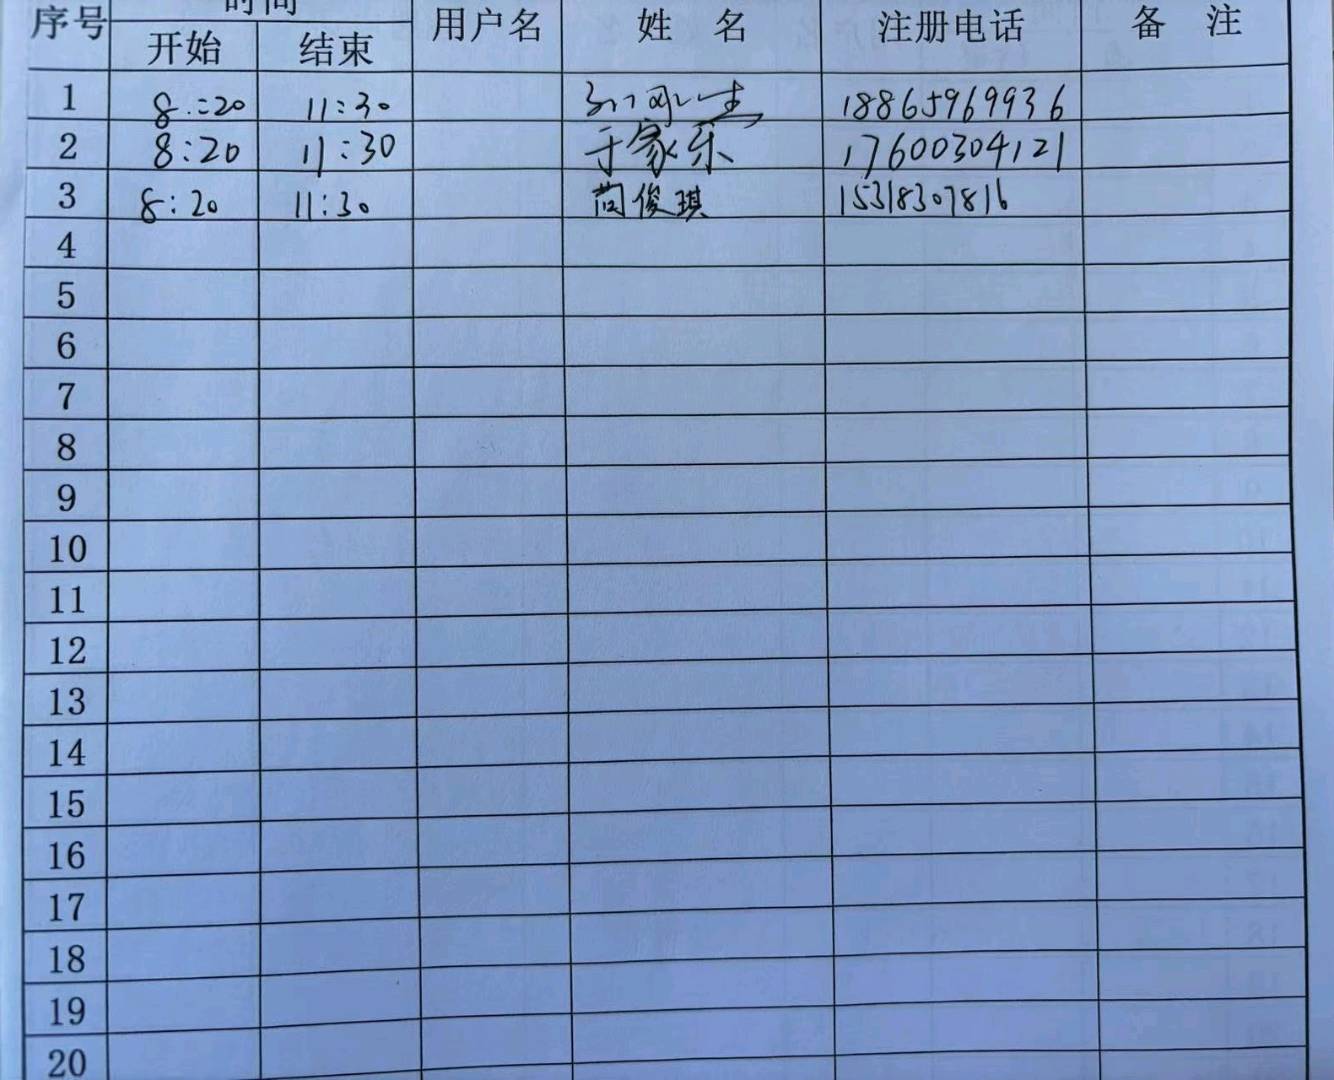 序号 时间 用户名 姓 名 注册电话 备 注
开始 结束
1 8:20 11:30 18865969936
2 8:20 11:30 于家乐 17600304121
3 8:20 11:30 尚俊琪 15318307816
4
5
6
7
8
9
10
11
12
13
14
15
16
17
18
19
20